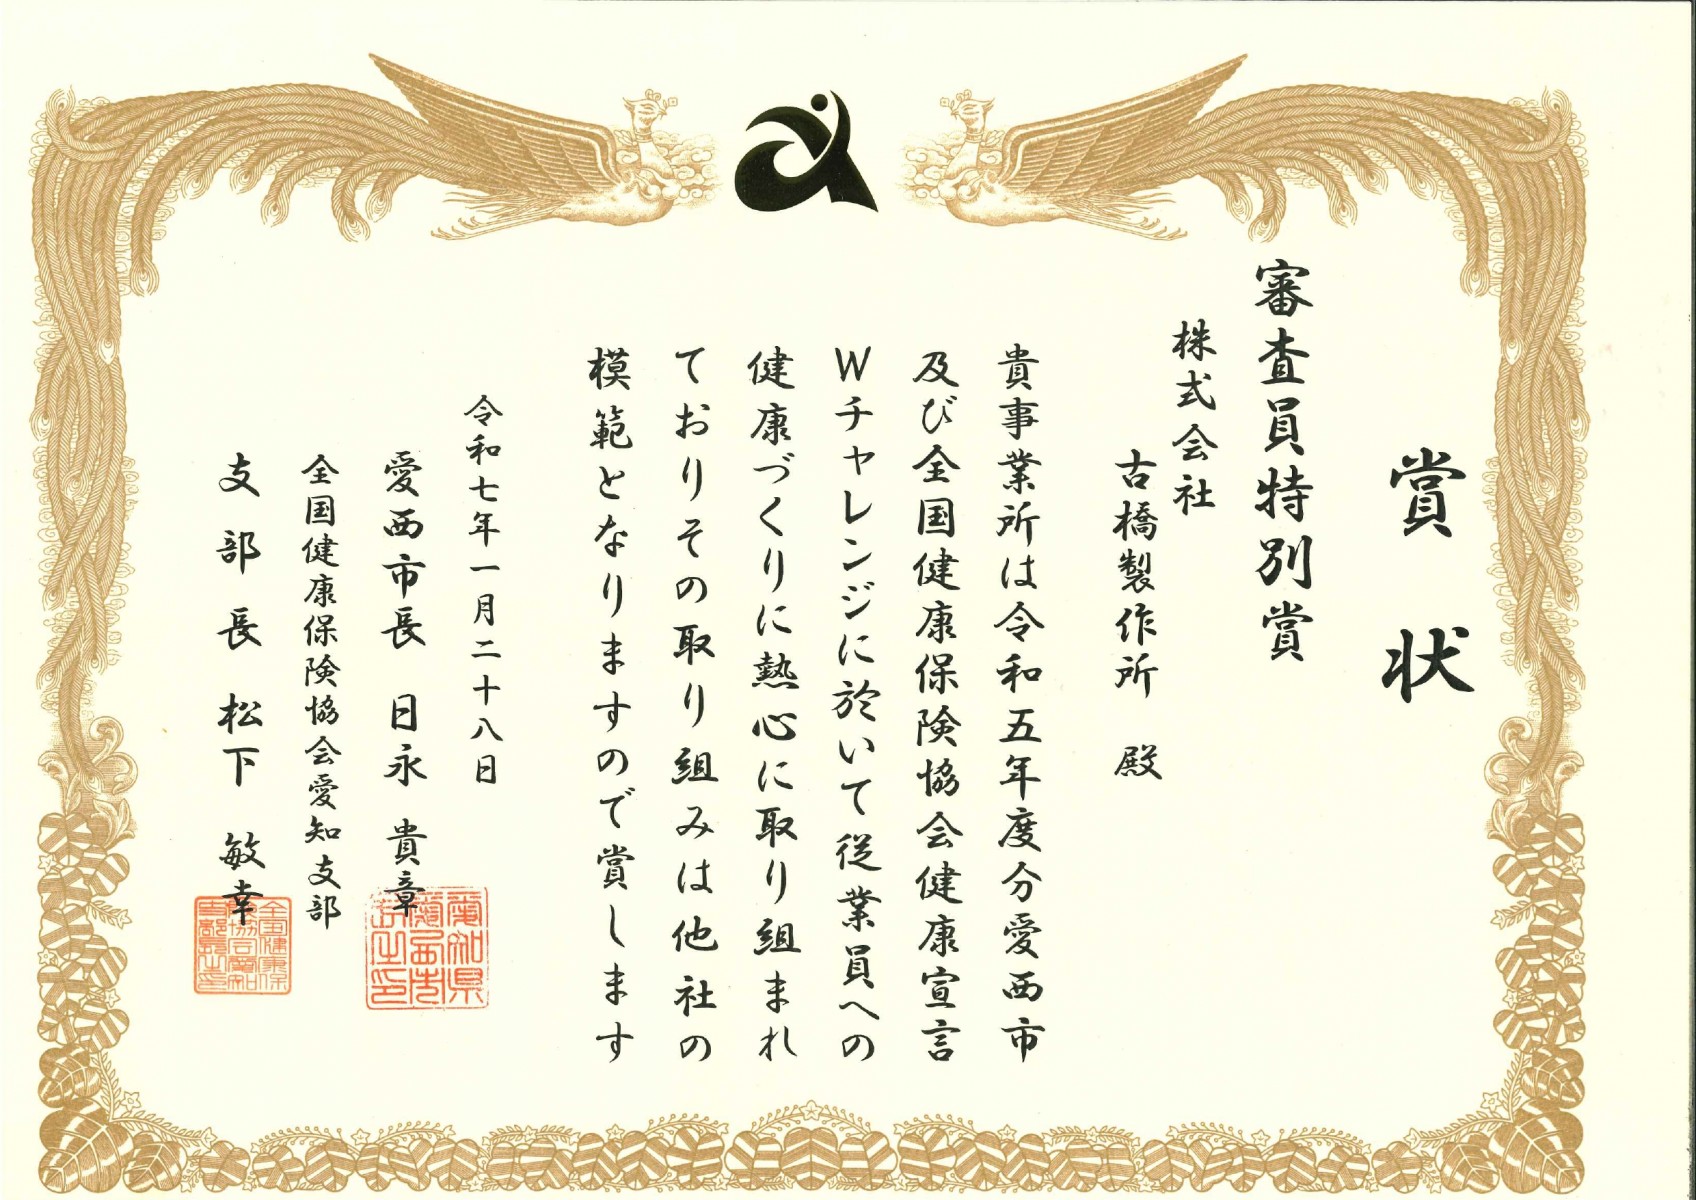 賞状
審査員特別賞
株式会社
古橋製作所 殿
貴事業所は令和五年度分愛西市
及び全国健康保険協会健康宣言
Wチャレンジに於いて従業員への
健康づくりに熱心に取り組まれ
ておりその取り組みは他社の
模範となりますので賞します
令和七年一月二十八日
愛西市長 日永 貴章
全国健康保険協会愛知支部
支部長 松下 敏幸
愛知県愛西市長之印
全国健康保険協会愛知支部長之印